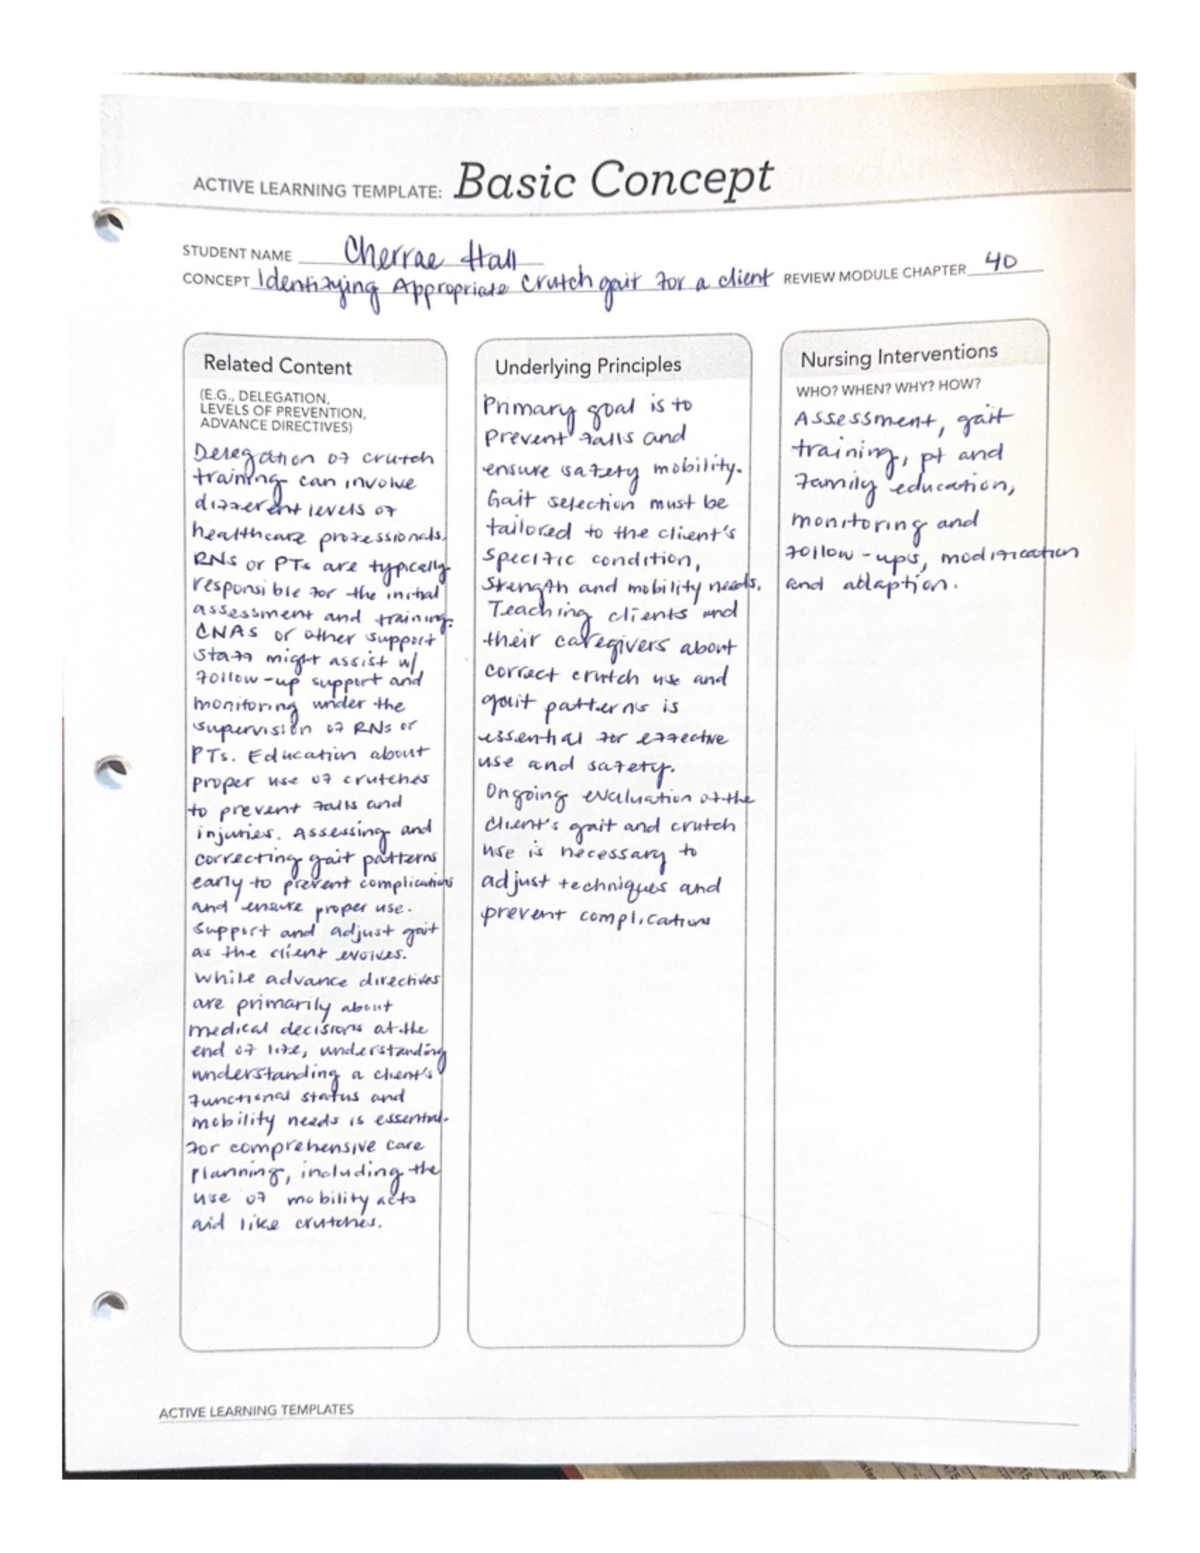 ACTIVE LEARNING TEMPLATE: Basic Concept
STUDENT NAME Cherrae Hall
CONCEPT Identifying Appropriate crutch gait for a client REVIEW MODULE CHAPTER 40
Related Content
(E.G., DELEGATION,
LEVELS OF PREVENTION,
ADVANCE DIRECTIVES)
Delegation of crutch
training can involve
different levels of
healthcare professionals.
RNs or PTs are typically
responsible for the initial
assessment and training.
CNAs or other support
staff might assist w/
follow-up support and
monitoring under the
supervision of RNs or
PTs. Education about
proper use of crutches
to prevent falls and
injuries. Assessing and
correcting gait patterns
early to prevent complications
and ensure proper use.
Support and adjust gait
as the client evolves.
While advance directives
are primarily about
medical decisions at the
end of life, understanding
understanding a client's
functional status and
mobility needs is essential
for comprehensive care
planning, including the
use of mobility acts
aid like crutches.
Underlying Principles
Primary goal is to
prevent falls and
ensure safety mobility.
Gait selection must be
tailored to the client's
specific condition,
strength and mobility needs.
Teaching clients and
their caregivers about
correct crutch use and
gait patterns is
essential for effective
use and safety.
Ongoing evaluation of the
client's gait and crutch
use is necessary to
adjust techniques and
prevent complications
Nursing Interventions
WHO? WHEN? WHY? HOW?
Assessment, gait
training, pt and
family education,
monitoring and
follow-ups, modification
and adaption.
ACTIVE LEARNING TEMPLATES